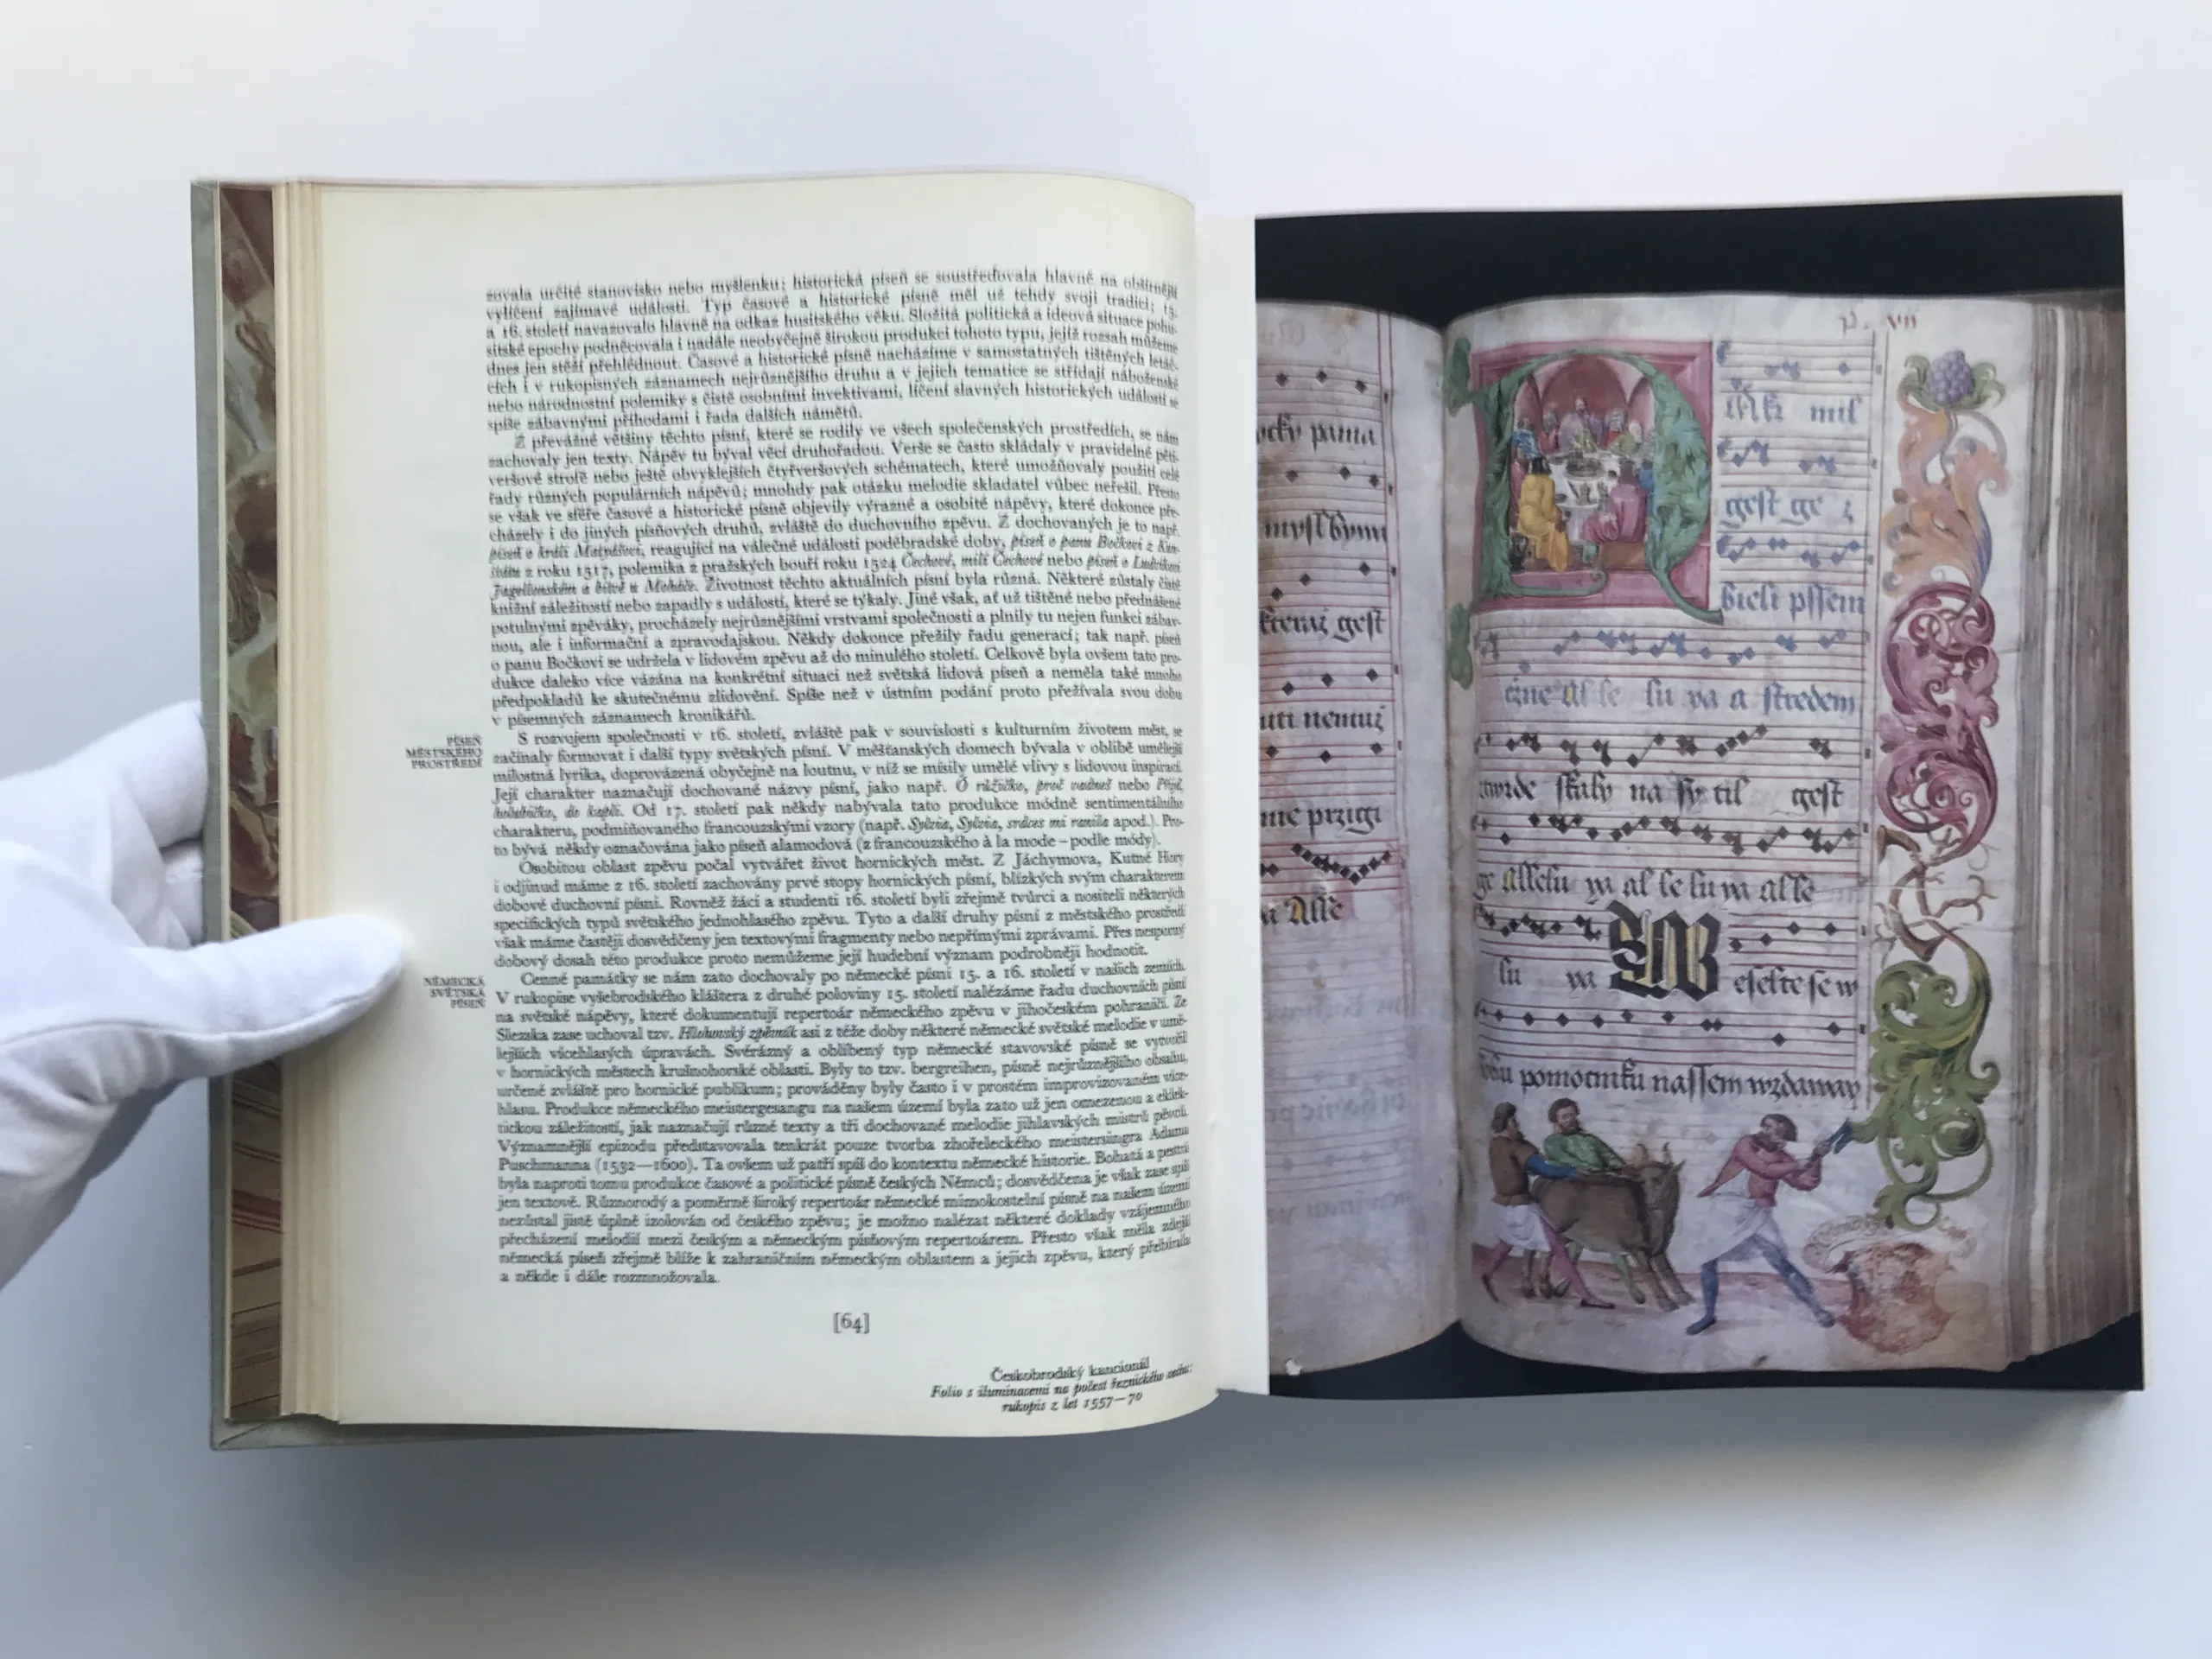 zovala určité stanovisko nebo myšlenku; historická píseň se soustřeďovala hlavně na obšírnější
vylíčení zajímavé události. Typ časové a historické písně měl už tehdy svoji tradici; 15.
a 16. století navazovalo hlavně na odkaz husitského věku. Složitá politická a ideová situace pohu-
sitské epochy podněcovala i nadále neobyčejně širokou produkci tohoto typu, jejíž rozsah můžeme
dnes jen stěží přehlédnout. Časové a historické písně nacházíme v samostatných tištěných letác-
cích i v rukopisných záznamech nejrůznějšího druhu a v jejich tematice se střídají náboženské
nebo národnostní polemiky s čistě osobními invektivami, líčení slavných historických událostí se
spíše zábavnými příhodami i řada dalších námětů.
Z převážné většiny těchto písní, které se rodily ve všech společenských prostředích, se nám
zachovaly jen texty. Nápěv tu býval věcí druhořadou. Verše se často skládaly v pravidelné pěti-
veršové strofě nebo ještě obvyklejších čtyřveršových schématech, které umožňovaly použití celé
řady různých populárních nápěvů; mnohdy pak otázku melodie skladatel vůbec neřešil. Přesto
se však ve sféře časové a historické písně objevily výrazné a osobité nápěvy, které dokonce pře-
cházely i do jiných písňových druhů, zvláště do duchovního zpěvu. Z dochovaných je to např.
píseň o králi Matyášovi, reagující na válečné události poděbradské doby, píseň o panu Bočkovi z Kun-
štátu z roku 1517, polemika z pražských bouří roku 1524 Čechové, milí Čechové nebo píseň o Ludvíkovi
Jagellonském a bitvě u Moháče. Životnost těchto aktuálních písní byla různá. Některé zůstaly čistě
knižní záležitostí nebo zapadly s událostí, které se týkaly. Jiné však, ať už tištěné nebo přednášené
potulnými zpěváky, procházely nejrůznějšími vrstvami společnosti a plnily tu nejen funkci zábav-
nou, ale i informační a zpravodajskou. Někdy dokonce přežily řadu generací; tak např. píseň
o panu Bočkovi se udržela v lidovém zpěvu až do minulého století. Celkově byla ovšem tato pro-
dukce daleko více vázána na konkrétní situaci než světská lidová píseň a neměla také mnoho
předpokladů ke skutečnému zlidovění. Spíše než v ústním podání proto přežívala svou dobu
v písemných záznamech kronikářů.
PÍSEŇ
MĚSTSKÉHO
PROSTŘEDÍ
S rozvojem společnosti v 16. století, zvláště pak v souvislosti s kulturním životem měst, se
začínaly formovat i další typy světských písní. V měšťanských domech bývala v oblibě umělejší
milostná lyrika, doprovázená obyčejně na loutnu, v níž se mísily umělé vlivy s lidovou inspirací.
Její charakter naznačují dochované názvy písní, jako např. Ó růžičko, proč vadneš nebo Přijď,
holubičko, do kaply. Od 17. století pak někdy nabývala tato produkce módně sentimentálního
charakteru, podmiňovaného francouzskými vzory (např. Sylvia, Sylvia, srdces mi ranila apod.). Pro-
to bývá někdy označována jako píseň alamodová (z francouzského à la mode – podle módy).
Osobitou oblast zpěvu počal vytvářet život hornických měst. Z Jáchymova, Kutné Hory
i odjinud máme z 16. století zachovány prvé stopy hornických písní, blízkých svým charakterem
dobové duchovní písni. Rovněž žáci a studenti 16. století byli zřejmě tvůrci a nositeli některých
specifických typů světského jednohlasého zpěvu. Tyto a další druhy písní z městského prostředí
však máme častěji dosvědčeny jen textovými fragmenty nebo nepřímými zprávami. Přes nesporný
dobový dosah této produkce proto nemůžeme její hudební význam podrobněji hodnotit.
NĚMECKÁ
SVĚTSKÁ
PÍSEŇ
Cenné památky se nám zato dochovaly po německé písni 15. a 16. století v našich zemích.
V rukopise vyšebrodského kláštera z druhé poloviny 15. století nalézáme řadu duchovních písní
na světské nápěvy, které dokumentují repertoár německého zpěvu v jihočeském pohraničí. Ze
Slezska zase uchoval tzv. Hlohovský zpěvník asi z téže doby některé německé světské melodie v umě-
lejších vícehlasých úpravách. Svérázný a oblíbený typ německé stavovské písně se vytvořil
v hornických městech krušnohorské oblasti. Byly to tzv. bergreihen, písně nejrůznějšího obsahu,
určené zvláště pro hornické publikum; prováděny byly často i v prostém improvizovaném více-
hlasu. Produkce německého meistergesangu na našem území byla zato už jen omezenou a eklek-
tickou záležitostí, jak naznačují různé texty a tři dochované melodie jihlavských mistrů pěvců.
Významnější epizodu představovala tenkrát pouze tvorba zhořeleckého meistersingra Adama
Puschmanna (1532—1600). Ta ovšem už patří spíš do kontextu německé historie. Bohatá a pestrá
byla naproti tomu produkce časové a politické písně českých Němců; dosvědčena je však zase spíš
jen textově. Různorodý a poměrně široký repertoár německé mimokostelní písně na našem území
nezůstal jistě úplně izolován od českého zpěvu; je možno nalézat některé doklady vzájemného
přecházení melodií mezi českým a německým písňovým repertoárem. Přesto však měla zdejší
německá píseň zřejmě blíže k zahraničním německým oblastem a jejich zpěvu, který přebírala
a někde i dále rozmnožovala.
[64]
Českobrodský kancionál
Folio s iluminacemi na počest řeznického cechu:
rukopis z let 1557—70
pama
myslbymi
kteraz gest
uti nemuz
me przigi
a Alle
p. vii
mil
gest ge z
bieli pssem
czne al le lu ya a stredem
twrde skaly na sy til gest
ge allelu ya al le lu ya alle
lu ya Weselte se w
bohu pomocniku nassem wzdaway